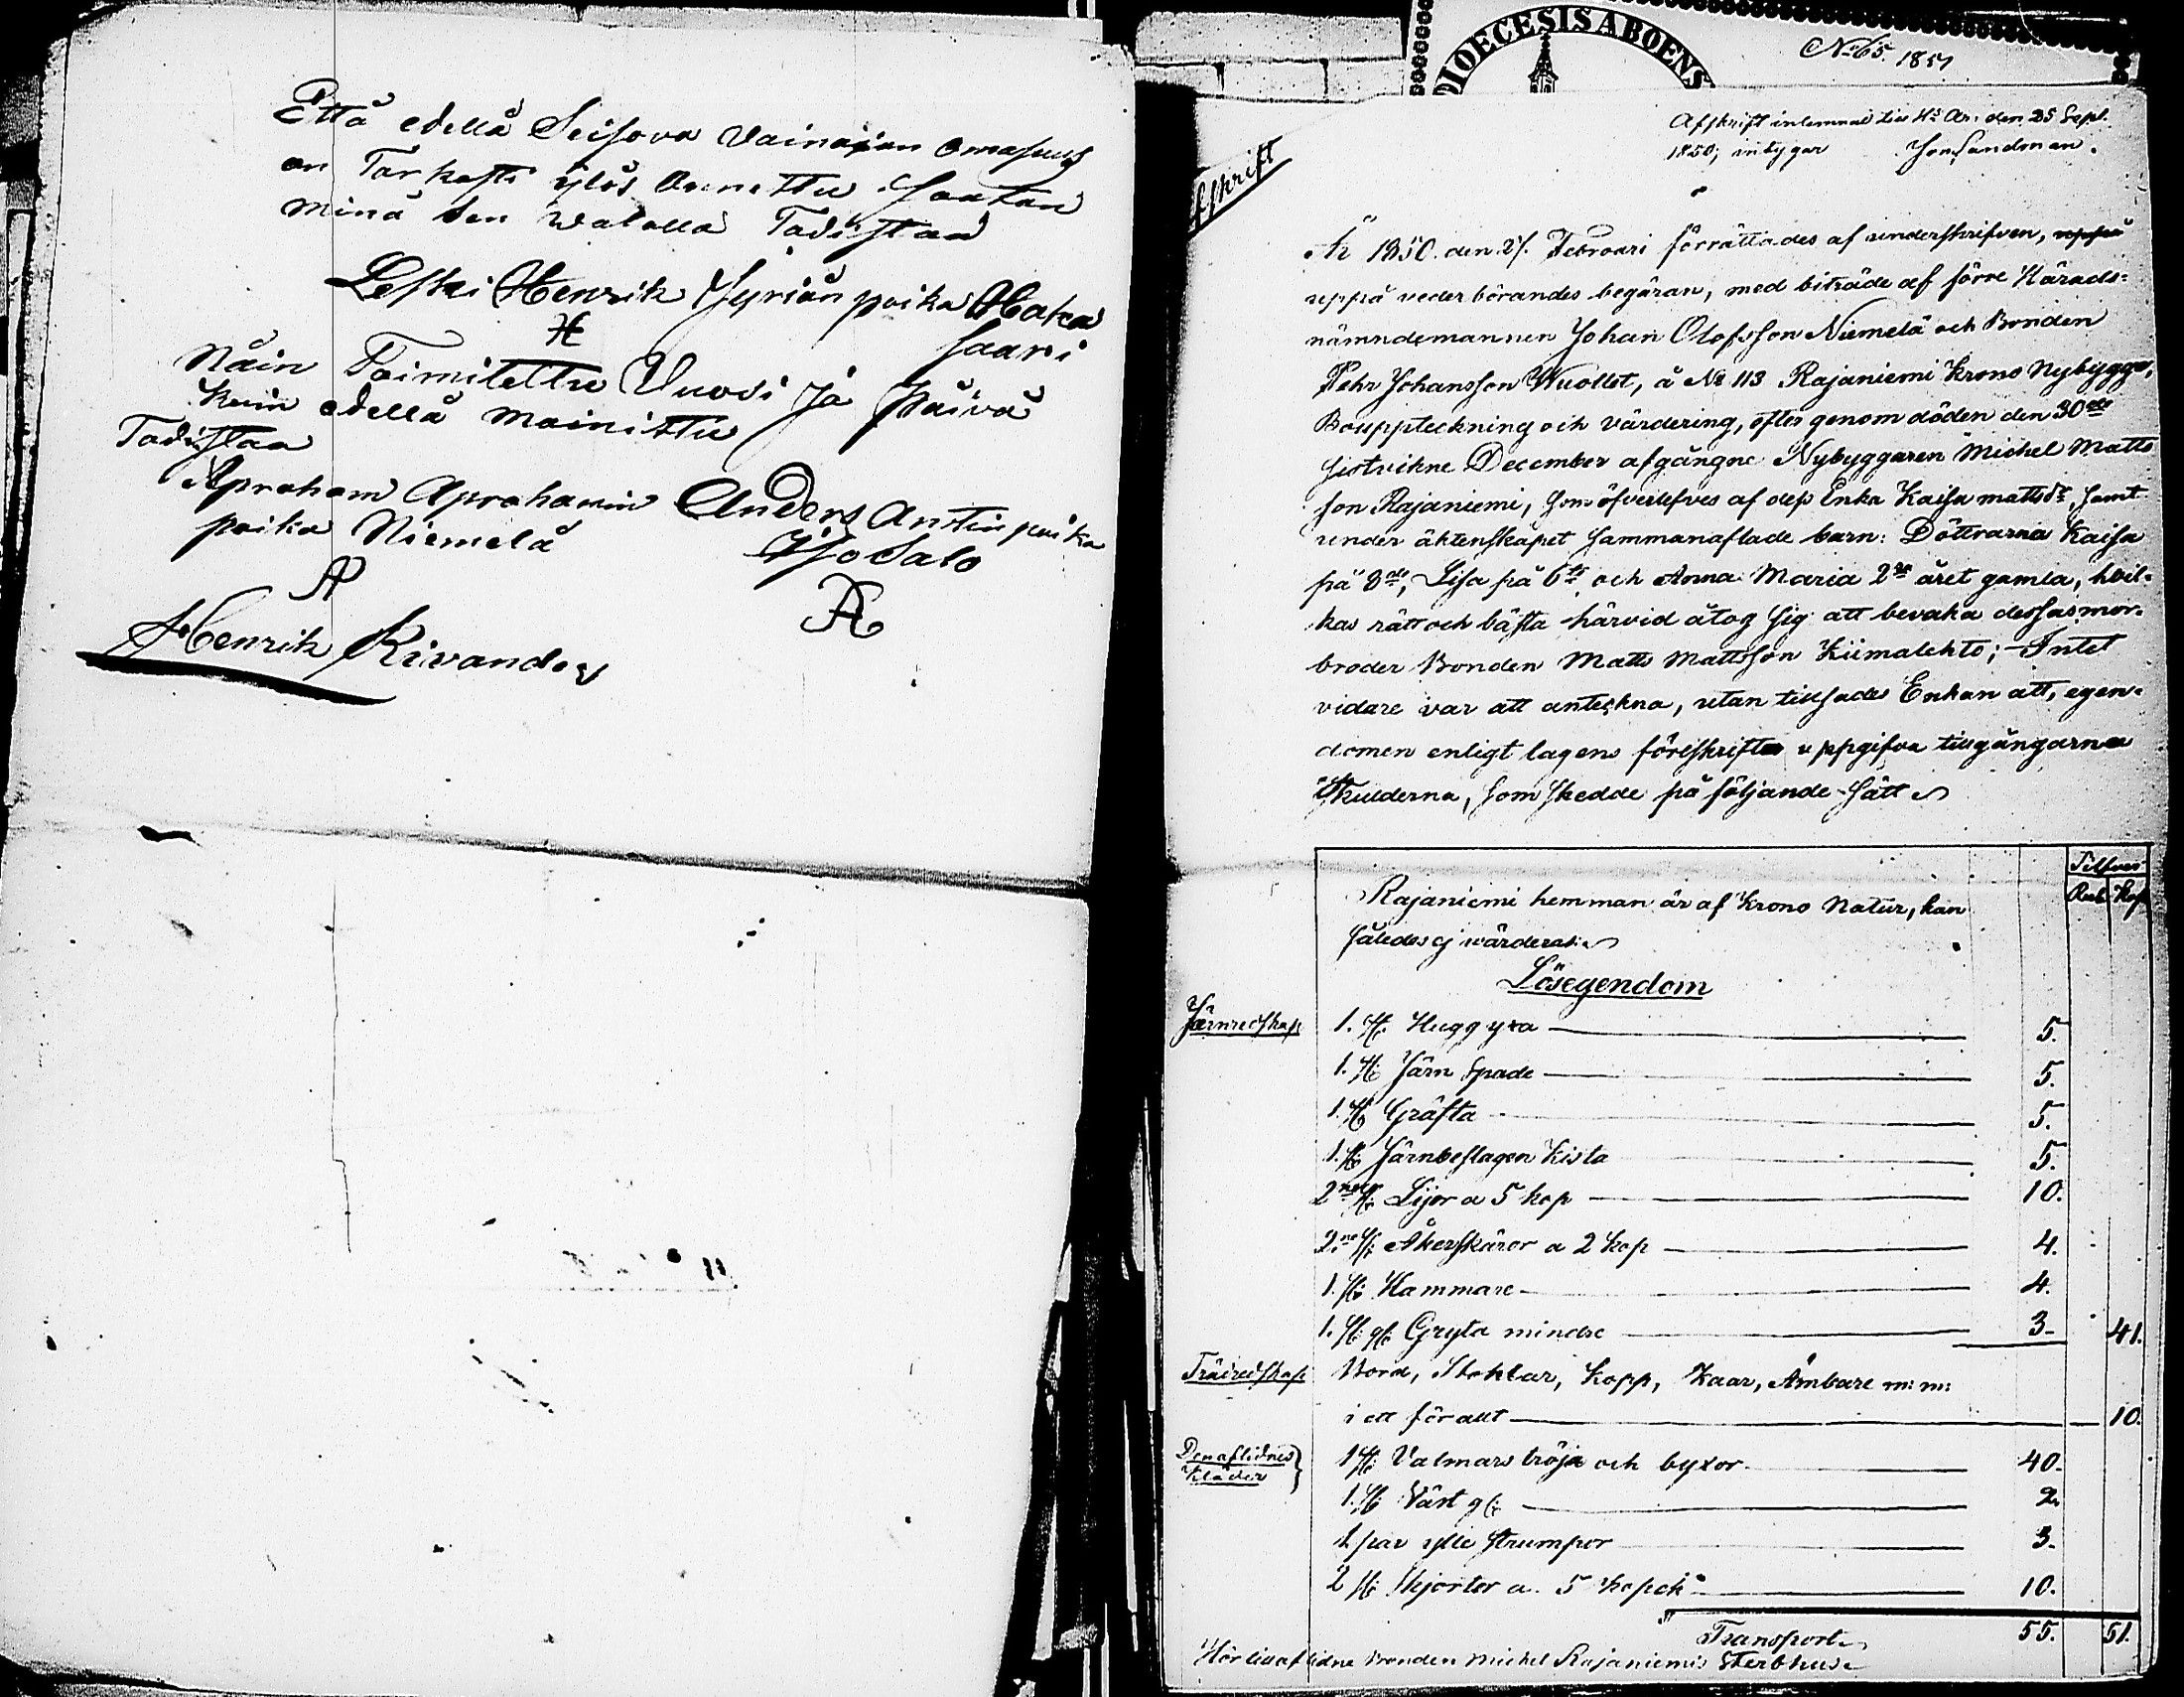 Että edellä Seisova Vainajan omasuus
on Tarkasti ylös Annettu Saatan
minä sen Walalla Todistaa
Leski Henrik Yyriän poika Haka
H saari
Näin Toimitettu Vuosi Ja Päivä
Kuin edellä mainittu
Todistaa
Apraham Aprahamin poika Niemelä
AP
Anders Antin poika Iso Salo
AA
Henrik Kivander
DIOECESIS ABOENS
No 65. 1851
Afskrift inlemnad till Hs Ar: den 25 Sept.
1850; intygar Jon Sandman.
Afskrift
År 1850. den 21. Februari förrättades af underskrifven, uppå
uppå vederbörandes begäran, med biträde af förre Härads-
nämndemannen Johan Olofsson Niemelä och Bonden
Pehr Johansson Wuollet, å No 113 Rajaniemi Krono Nybygge,
Bouppteckning och värdering, efter genom döden den 30de
sistvikne December afgångne Nybyggaren Michel Matts
son Rajaniemi, som öfverlefves af dess Enka Kaisa mattsdr, samt
under äktenskapet sammanaflade barn: Döttrarna Kaisa
på 8de, Lisa på 6te och Anna Maria 2dra året gamla, hvil-
kas rätt och bästa härvid åtog sig att bevaka dessas mor-
broder Bonden Matts Mattsson Kiimalehto; Intet
vidare var att anteckna, utan tillsades Enkan att, egen-
domen enligt lagens föreskrifter uppgifva tillgångarna
Skulderna, som skedde på följande sätt
Silfver
Rub Kop
Rajaniemi hemman är af Krono Natur, kan
således ej wärderas
Lösegendom
Järnredskap 1. st. Huggyxa 5.
1. st. Järn Spade 5.
1. st. Gräfta 5.
1. st. Järnbeslagen Kista 5.
2ne st. Lijor a 5 kop 10.
2ne st. Åkerskäror a 2 Kop 4.
1. st. Hammare 4.
1. st. gl. Gryta mindre 3 41.
Trädredskap Bord, Stohlar, Kopp, Kaar, Ämbare m: m:
i ett för allt 10.
Den aflidnes Kläder 1 st. Valmars tröja och byxor 40.
1. st. Väst gl: 2.
1 par ylle strumpor 3.
2 st. Skjortor a. 5 kopek 10.
Transport 55. 51.
Hör till aflidne Bonden Michel Rajaniemis Sterbhus